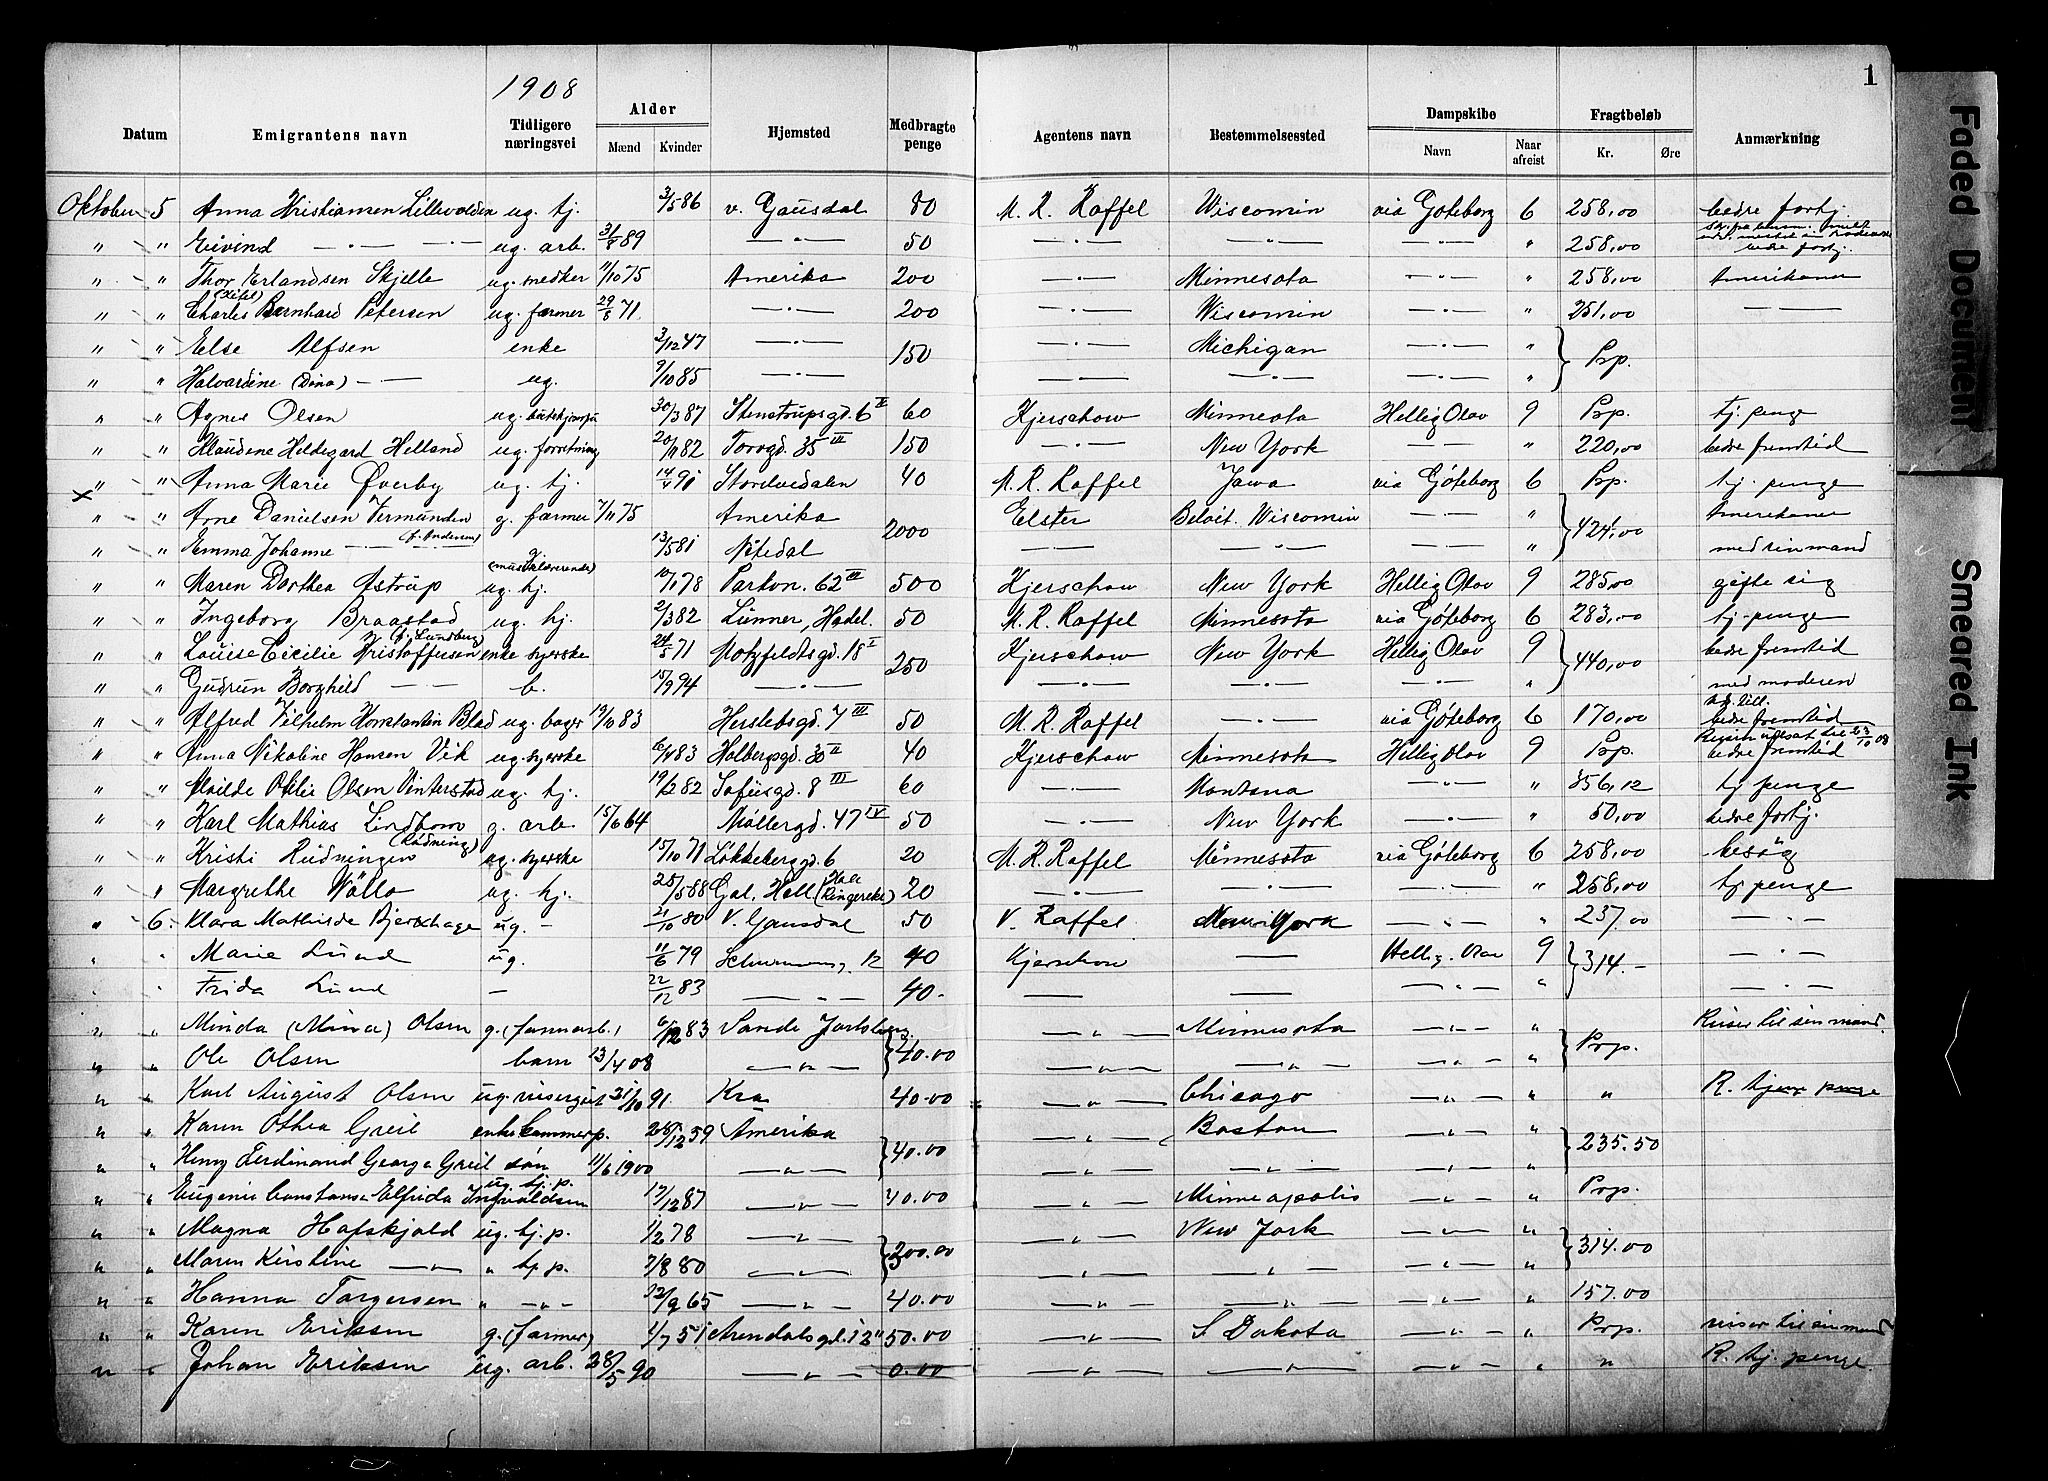 1
1908
Datum Emigrantens navn Tidligere næringsvei Alder Mænd Kvinder Hjemsted Medbragte penge Agentens navn Bestemmelsessted Dampskibe Navn Naar afreist Fragtbeløb Kr. Øre Anmærkning
Oktober 5 Anna Kristiansen Lillevolden ug. tj. 3/5 86 v. Gausdal 80 M. R. Raffel Wisconsin via Göteborg 6 258,00 bedre fortj.
" " Eivind — " — ug. arb. 31/8 89 — " — 50 — " — — " — — " — " 258,00 bedre fortj.
" " Thor Erlandsen Skjelle ug. snedker 11/10 75 Amerika 200 — " — Minnesota — " — " 258,00 Amerikaner
" " Charles Bernhard Petersen ug. farmer 29/8 71 — " — 200 — " — Wisconsin — " — " 251,00 — " —
" " Else Alfsen enke 2/12 47 — " — 150 — " — Michigan — " — " Prp.
" " Halvardine (Dina) — " — ug. 9/10 85 — " — — " — — " — — " — "
" " Agnes Olsen ug. 30/3 87 Stenstrupsgd. 6 II 60 Kjerschow Minnesota Hellig Olav 9 Prp. tj. penge
" " Klaudene Hildegard Helland ug. forretning 20/11 82 Torvgd. 35 III 150 — " — New York — " — " 220,00 bedre fremtid
" " Anna Marie Øverby ug. tj. 14/4 91 Storelvedalen 40 M. R. Raffel Jowa via Göteborg 6 Prp. tj. penge
× " " Arne Danielsen Vermunden g. farmer 7/11 75 Amerika 2000 Elster Beloit. Wisconsin — " — " 424,00 Amerikaner
" " Emma Johanne — " — (f. Andersen) g. 13/5 81 Nitedal — " — — " — — " — " med sin mand
" " Maren Dorthea Astrup ug. hj. 10/1 78 Parkvn. 62 III 500 Kjerschow New York Hellig Olav 9 285,00 gifte sig
" " Ingeborg Braastad ug. hj. 2/3 82 Lunner, Hadel. 50 M. R. Raffel Minnesota via Göteborg 6 283,00 tj. penge
" " Louise Cicilie Kristoffersen (f. Lundberg) enke syerske 24/5 71 Motzfeldtsgd. 18 I 250 Kjerschow New York Hellig Olav 9 440,00 bedre fremtid
" " Gudrun Borghild — " — b. 15/9 94 — " — — " — — " — — " — " med moderen
" " Alfred Vilhelm Konstantin Blad ug. bager 13/10 83 Herslebsgd. 7 III 50 M. R. Raffel — " — via Göteborg 6 170,00 bedre fremtid
" " Anna Nikoline Hansen Vik ug. syerske 6/4 83 Holbergsgd. 30 II 40 Kjerschow Minnesota Hellig Olav 9 Prp. Reisen udsat til 23/10 08 bedre fremtid
" " Mailde Otilie Olsen Vinterstad ug. tj. 19/2 82 Sofiesgd. 8 III 60 — " — Montana — " — " 356,12 tj. penge
" " Karl Mathias Lindbom g. arb. 15/6 64 Møllergd. 47 IV 50 — " — New York — " — " 50,00 bedre fortj.
" " Kristi Rudningen (Rødning) ug. syerske 15/10 71 Løkkeberggd. 6 20 M. R. Raffel Minnesota via Göteborg 6 258,00 besøg
" " Margrethe Wøllo ug. hj. 25/5 88 Gol, Hall (Hole Ringerike) 20 — " — — " — — " — " 258,00 tj. penge
" 6. Klara Mathilde Bjerkhage ug. — 21/10 80 V. Gausdal 50 V. Raffel New York — " — " 237.00 — " —
" " Marie Lund ug. 11/6 79 12 40 Kjerschow — Hellig Olav 9 314.— — " —
" " Frida Lund — 22/12 83 — " — 40. — — — " — " — " —
" " Minda (Mina) Olsen g. (farmarb.) 6/12 83 Sande Jarlsberg 40.00 — " — Minnesota — " — " Prp. Reiser til sin mand.
" " Ole Olsen barn 13/4 08 — " — — " — — " — — " — "
" " Karl August Olsen ug. visergut 31/10 91. Kra 40.00 — " — Chicago — " — " " R. tjene penge
" " Karen Othea Greil enke kammerp. 28/12 59 Amerika 40.00 — " — Boston — " — " 235.50
" " Henry Ferdinand George Greil søn 11/6 1900 — " — — " — — " — — " — "
" " Eugenie Constanse Elfrida Ingvaldsen ug. tj. p. 17/12 87 — " — 40.00 — " — Minneapolis — " — " Prp.
" " Magna Hafskjold ug. tj. p. 1/2 78 — " — 200.00 — " — New York — " — " 314.00
" " Maren Kirstine — " — " tj. p. 7/8 80 — " — — " — — " — — " — "
" " Hanna Torgersen " — " — 12/9 65 — " — 40.00 — " — — " — — " — " 157.00
" " Karen Eriksen g. (farmer) 1/7 51 Arendalsgd. 12 II 50.00 — " — S Dakota — " — " Prp. reiser til sin mand
" " Johan Eriksen ug. arb. 28/5 90 — " — 0.00 — " — — " — — " — " " R. tj. penge.
Faded Document
Smeared Ink